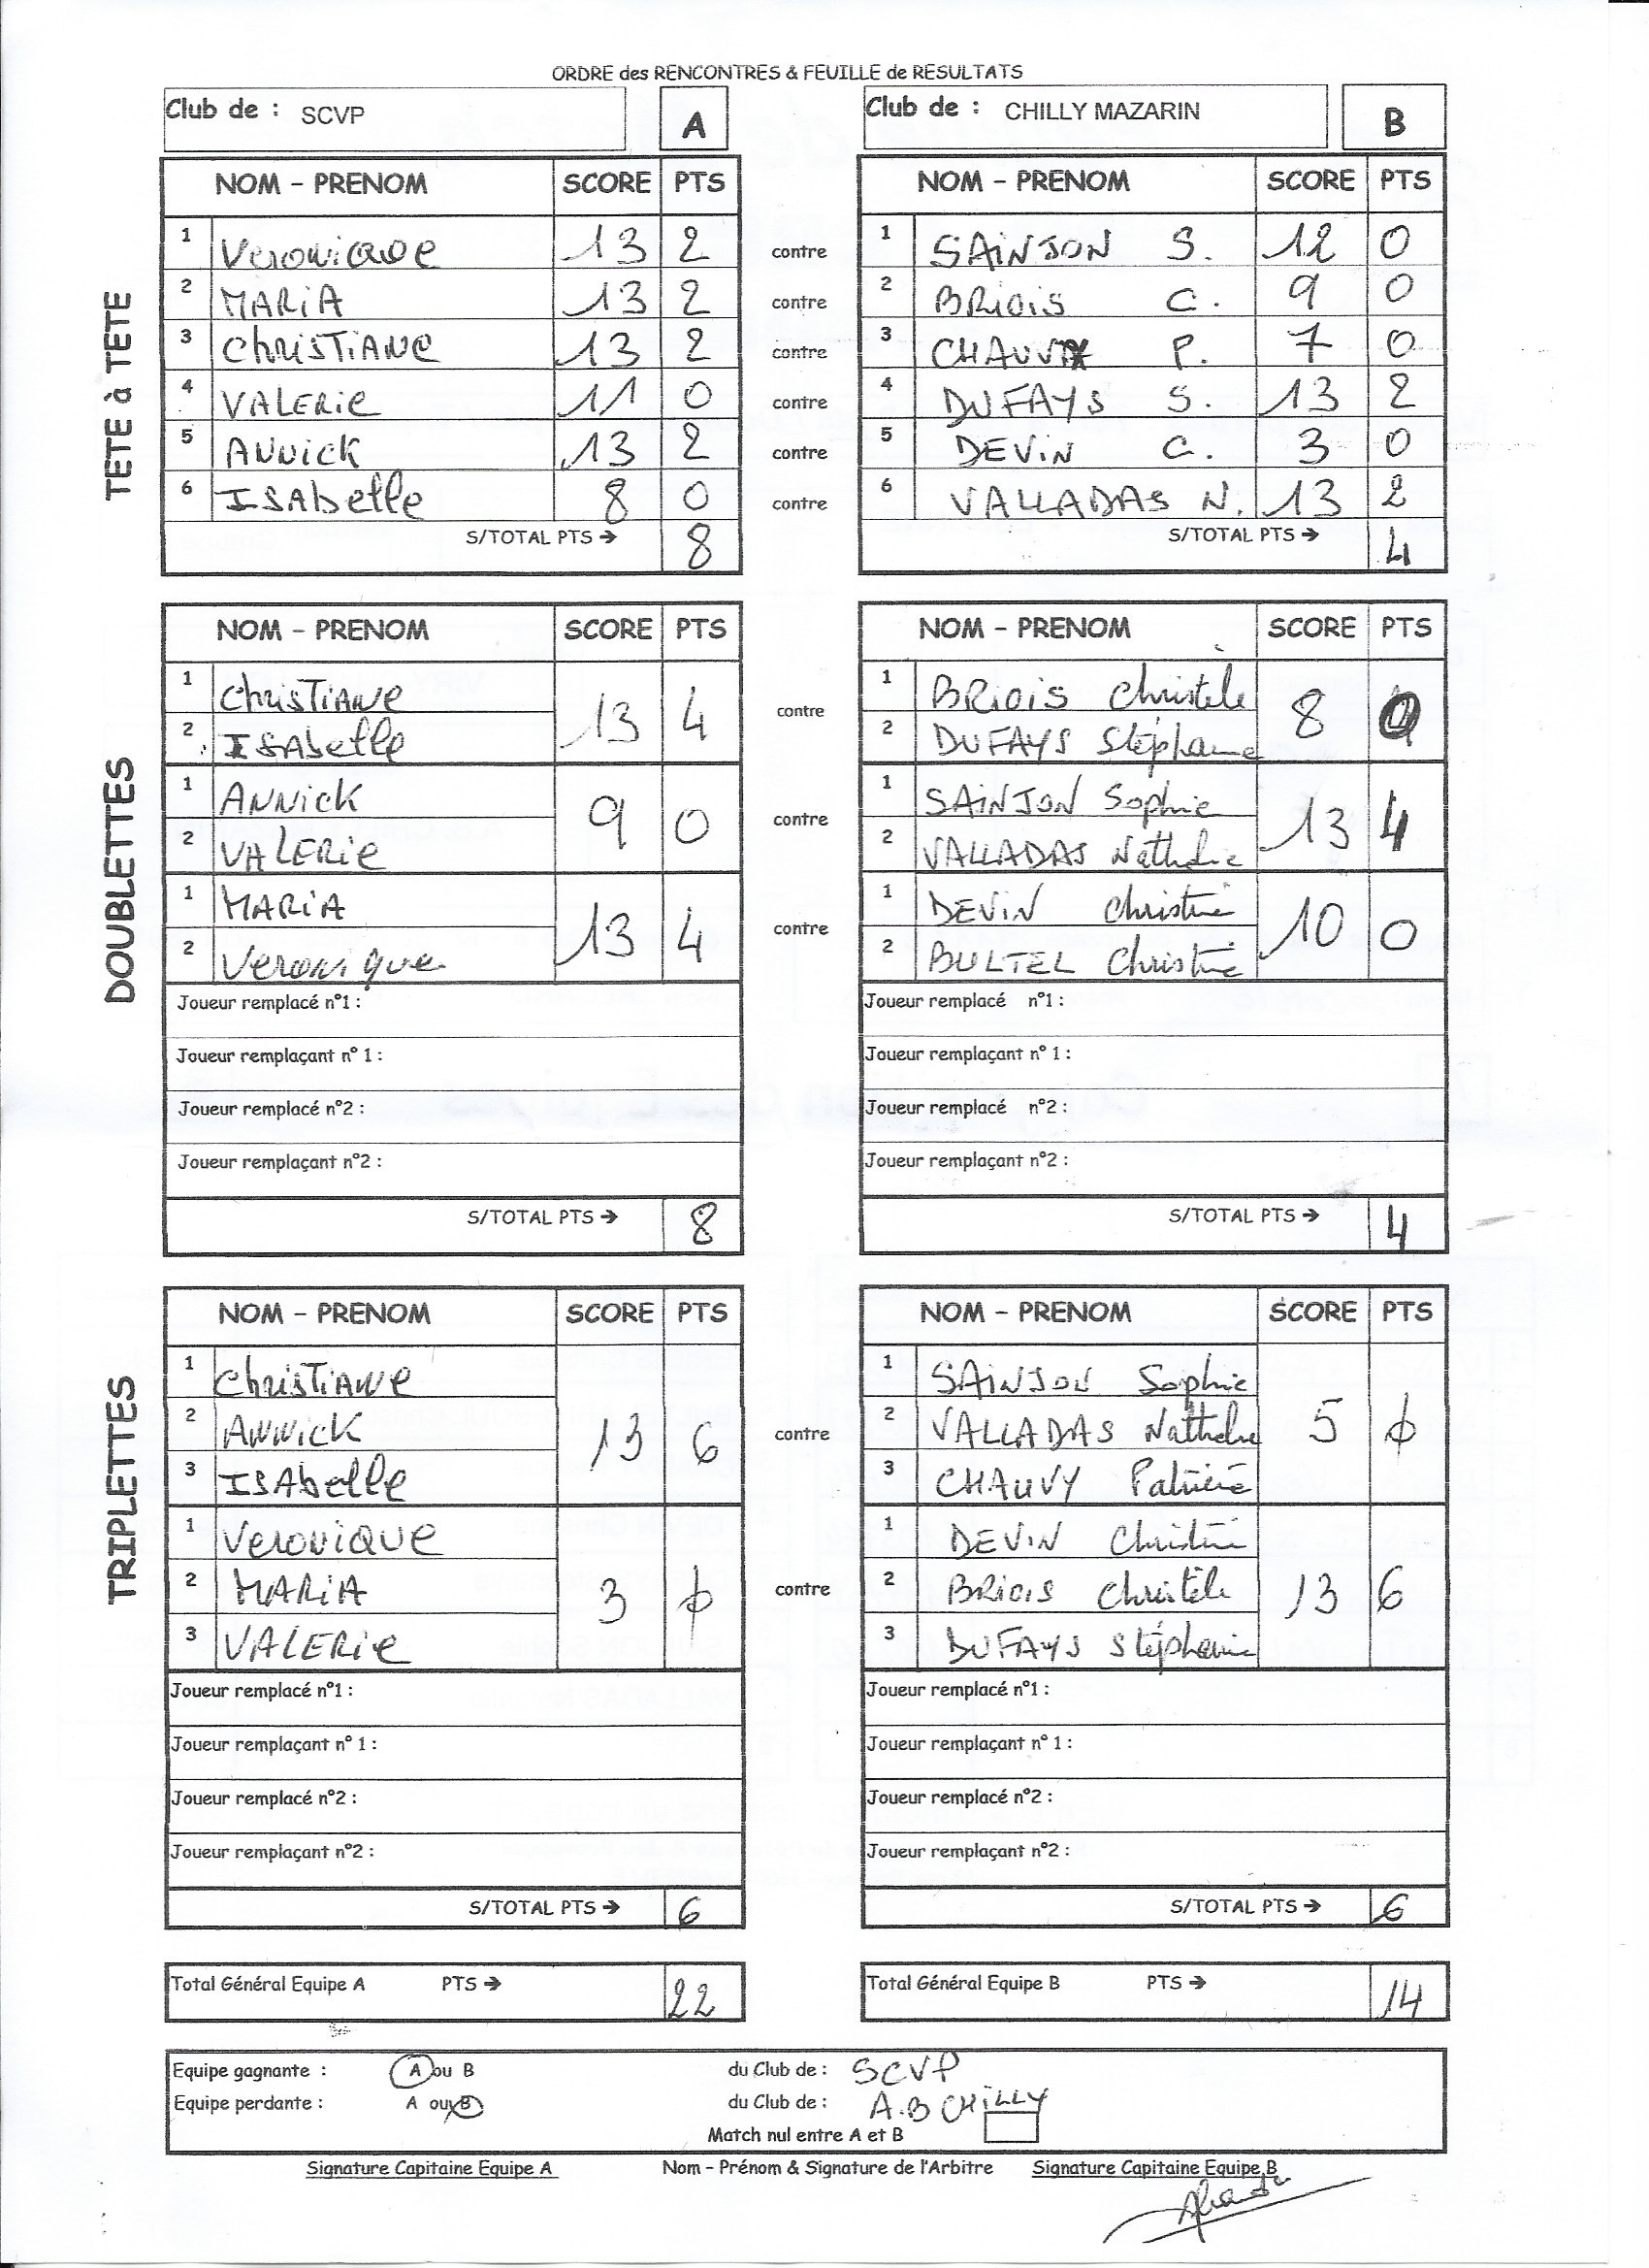 ORDRE des RENCONTRES & FEUILLE de RESULTATS
Club de : SCVP A Club de : CHILLY MAZARIN B
TETE à TETE
NOM - PRENOM SCORE PTS NOM - PRENOM SCORE PTS
1 Veronique 13 2 contre 1 SAINJON S. 12 0
2 MARIA 13 2 contre 2 BRIOIS C. 9 0
3 ChRISTIANE 13 2 contre 3 CHAUVY P. 7 0
4 VALERIE 11 0 contre 4 DUFAYS S. 13 2
5 ANNICK 13 2 contre 5 DEVIN C. 3 0
6 ISAbelle 8 0 contre 6 VALLADAS N. 13 2
S/TOTAL PTS → 8 S/TOTAL PTS → 4
DOUBLETTES
NOM - PRENOM SCORE PTS NOM - PRENOM SCORE PTS
1 ChrisTIANE 13 4 contre 1 BRIOIS Christèle 8 0
2 ISAbelle 2 DUFAYS Stéphanie
1 ANNICK 9 0 contre 1 SAINJON Sophie 13 4
2 VALERIE 2 VALLADAS Nathalie
1 MARIA 13 4 contre 1 DEVIN Christine 10 0
2 Veronique 2 BULTEL Christine
Joueur remplacé n°1 : Joueur remplacé n°1 :
Joueur remplaçant n° 1 : Joueur remplaçant n° 1 :
Joueur remplacé n°2 : Joueur remplacé n°2 :
Joueur remplaçant n°2 : Joueur remplaçant n°2 :
S/TOTAL PTS → 8 S/TOTAL PTS → 4
TRIPLETTES
NOM - PRENOM SCORE PTS NOM - PRENOM SCORE PTS
1 ChrisTIANE 1 SAINJON Sophie
2 ANNICK 13 6 contre 2 VALLADAS Nathalie 5 0
3 ISAbelle 3 CHAUVY Patricia
1 VeroniQUE 1 DEVIN Christine
2 MARIA 3 0 contre 2 BRIOIS Christèle 13 6
3 VALERIE 3 DUFAYS Stéphanie
Joueur remplacé n°1 : Joueur remplacé n°1 :
Joueur remplaçant n° 1 : Joueur remplaçant n° 1 :
Joueur remplacé n°2 : Joueur remplacé n°2 :
Joueur remplaçant n°2 : Joueur remplaçant n°2 :
S/TOTAL PTS → 6 S/TOTAL PTS → 6
Total Général Equipe A PTS → 22 Total Général Equipe B PTS → 14
Equipe gagnante : A ou B du Club de : SCVP
Equipe perdante : A ou B du Club de : A.B CHILLY
Match nul entre A et B
Signature Capitaine Equipe A Nom - Prénom & Signature de l'Arbitre Signature Capitaine Equipe B